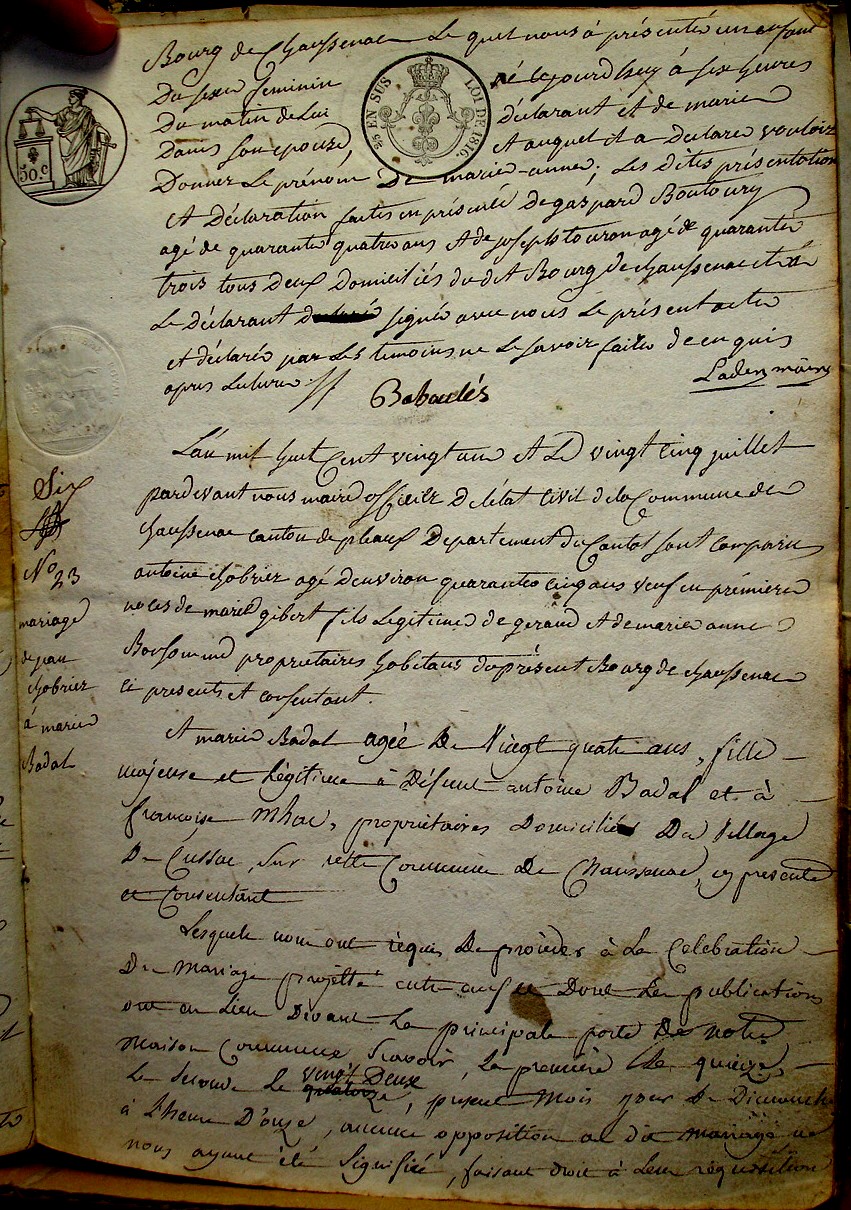 Bourg de Chaussenac Le quel nous à présenté un enfant
Du sexe feminin né cejourdhuy à six heures
Du matin de Lui déclarant et de marie
Danis son epouse Et auquel il a Declaré vouloir
Donner Le prénom De marie-anne; Les Dites présentation
Et Déclaration faites en présence De gaspard Boutoury
agé de quarante quatre ans et de joseph touron agé de quarante
trois tous deux Domiciliés du dit Bourg de chaussenac et
Le Déclarant signé avec nous Le présent acte
et déclaré par Les temoins ne Le savoir faire de ce enquis
apres Lecture
Babaulés
50.c
EN SUS
LOI DE 1816.
L'an mil huit Cent vingt un et Le vingt cinq juillet
pardevant nous maire officier De l'état Civil de la Commune de
chaussenac canton de pleaux Departement du Cantal sont comparu
antoine chobrier agé Denviron quarante cinq ans veuf en première
noces de marie gibert fils Legitime de geraud et de marie anne
propriétaires habitans du présent Bourg de chaussenac
ci presents et consentant.
Six
No 23
mariage
de jean
chobrier
à marie
Badal
Et marie Badal agée De Vingt quatre ans, fille
majeure et Légitime à Défunt antoine Badal et à
françoise Mhac, propriétaires Domiciliés Du Village
De Cussac, sur cette Commune de Chaussenac, cy presente
et Consentant
Lesquels nous ont requis De proceder à La Celebration
Du Mariage projetté entre eux et Dont Les publications
ont eu Lieu Devant La principale porte De notre
maison Commune Scavoir, La première Le quinze,
La seconde Le vingt Deux, present Mois jour De Dimanche
à L'heure D'onze, aucune opposition au dit mariage ne
nous ayant été Signifiée, faisant droit à Leur requisition